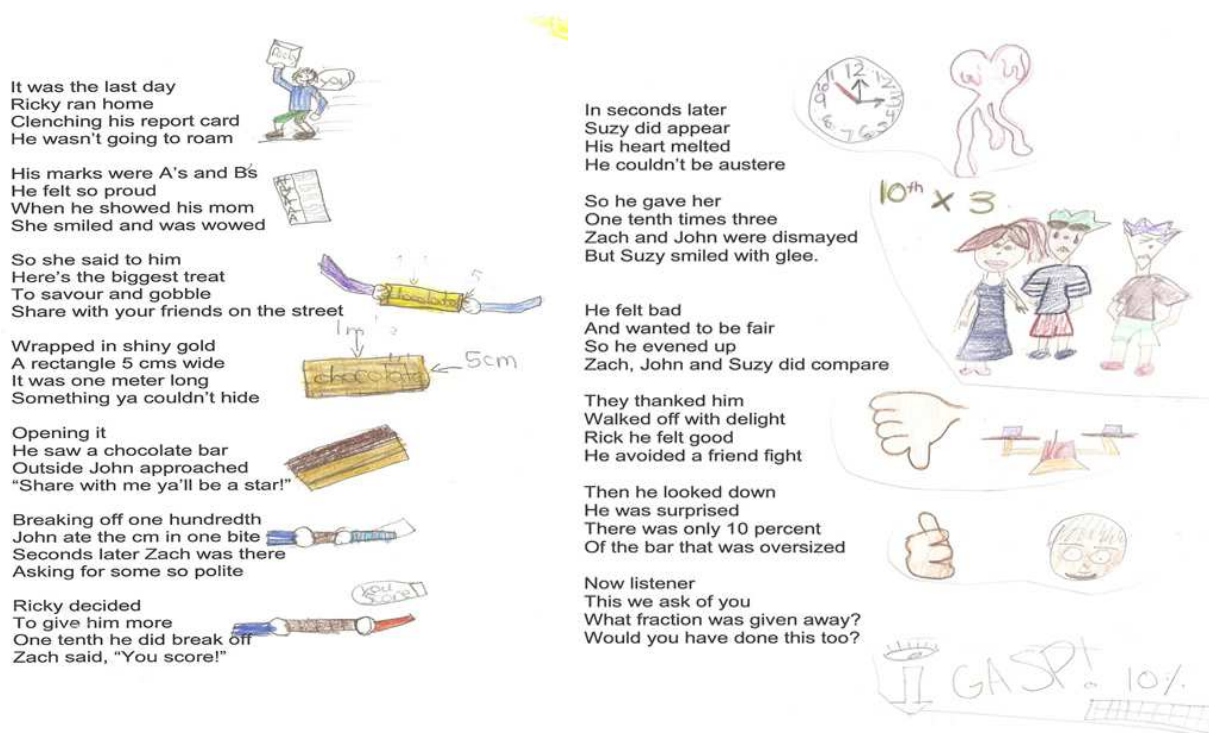 It was the last day
Ricky ran home
Clenching his report card
He wasn't going to roam
His marks were A's and B's
He felt so proud
When he showed his mom
She smiled and was wowed
So she said to him
Here's the biggest treat
To savour and gobble
Share with your friends on the street
chocolate
Wrapped in shiny gold
A rectangle 5 cms wide
It was one meter long
Something ya couldn't hide
1m
chocolate
5cm
Opening it
He saw a chocolate bar
Outside John approached
"Share with me ya'll be a star!"
Breaking off one hundredth
John ate the cm in one bite
Seconds later Zach was there
Asking for some so polite
Ricky decided
To give him more
One tenth he did break off
Zach said, "You score!"
You score!
In seconds later
Suzy did appear
His heart melted
He couldn't be austere
12
9
So he gave her
One tenth times three
Zach and John were dismayed
But Suzy smiled with glee.
10th x 3
He felt bad
And wanted to be fair
So he evened up
Zach, John and Suzy did compare
They thanked him
Walked off with delight
Rick he felt good
He avoided a friend fight
Then he looked down
He was surprised
There was only 10 percent
Of the bar that was oversized
Now listener
This we ask of you
What fraction was given away?
Would you have done this too?
GASP! 10%